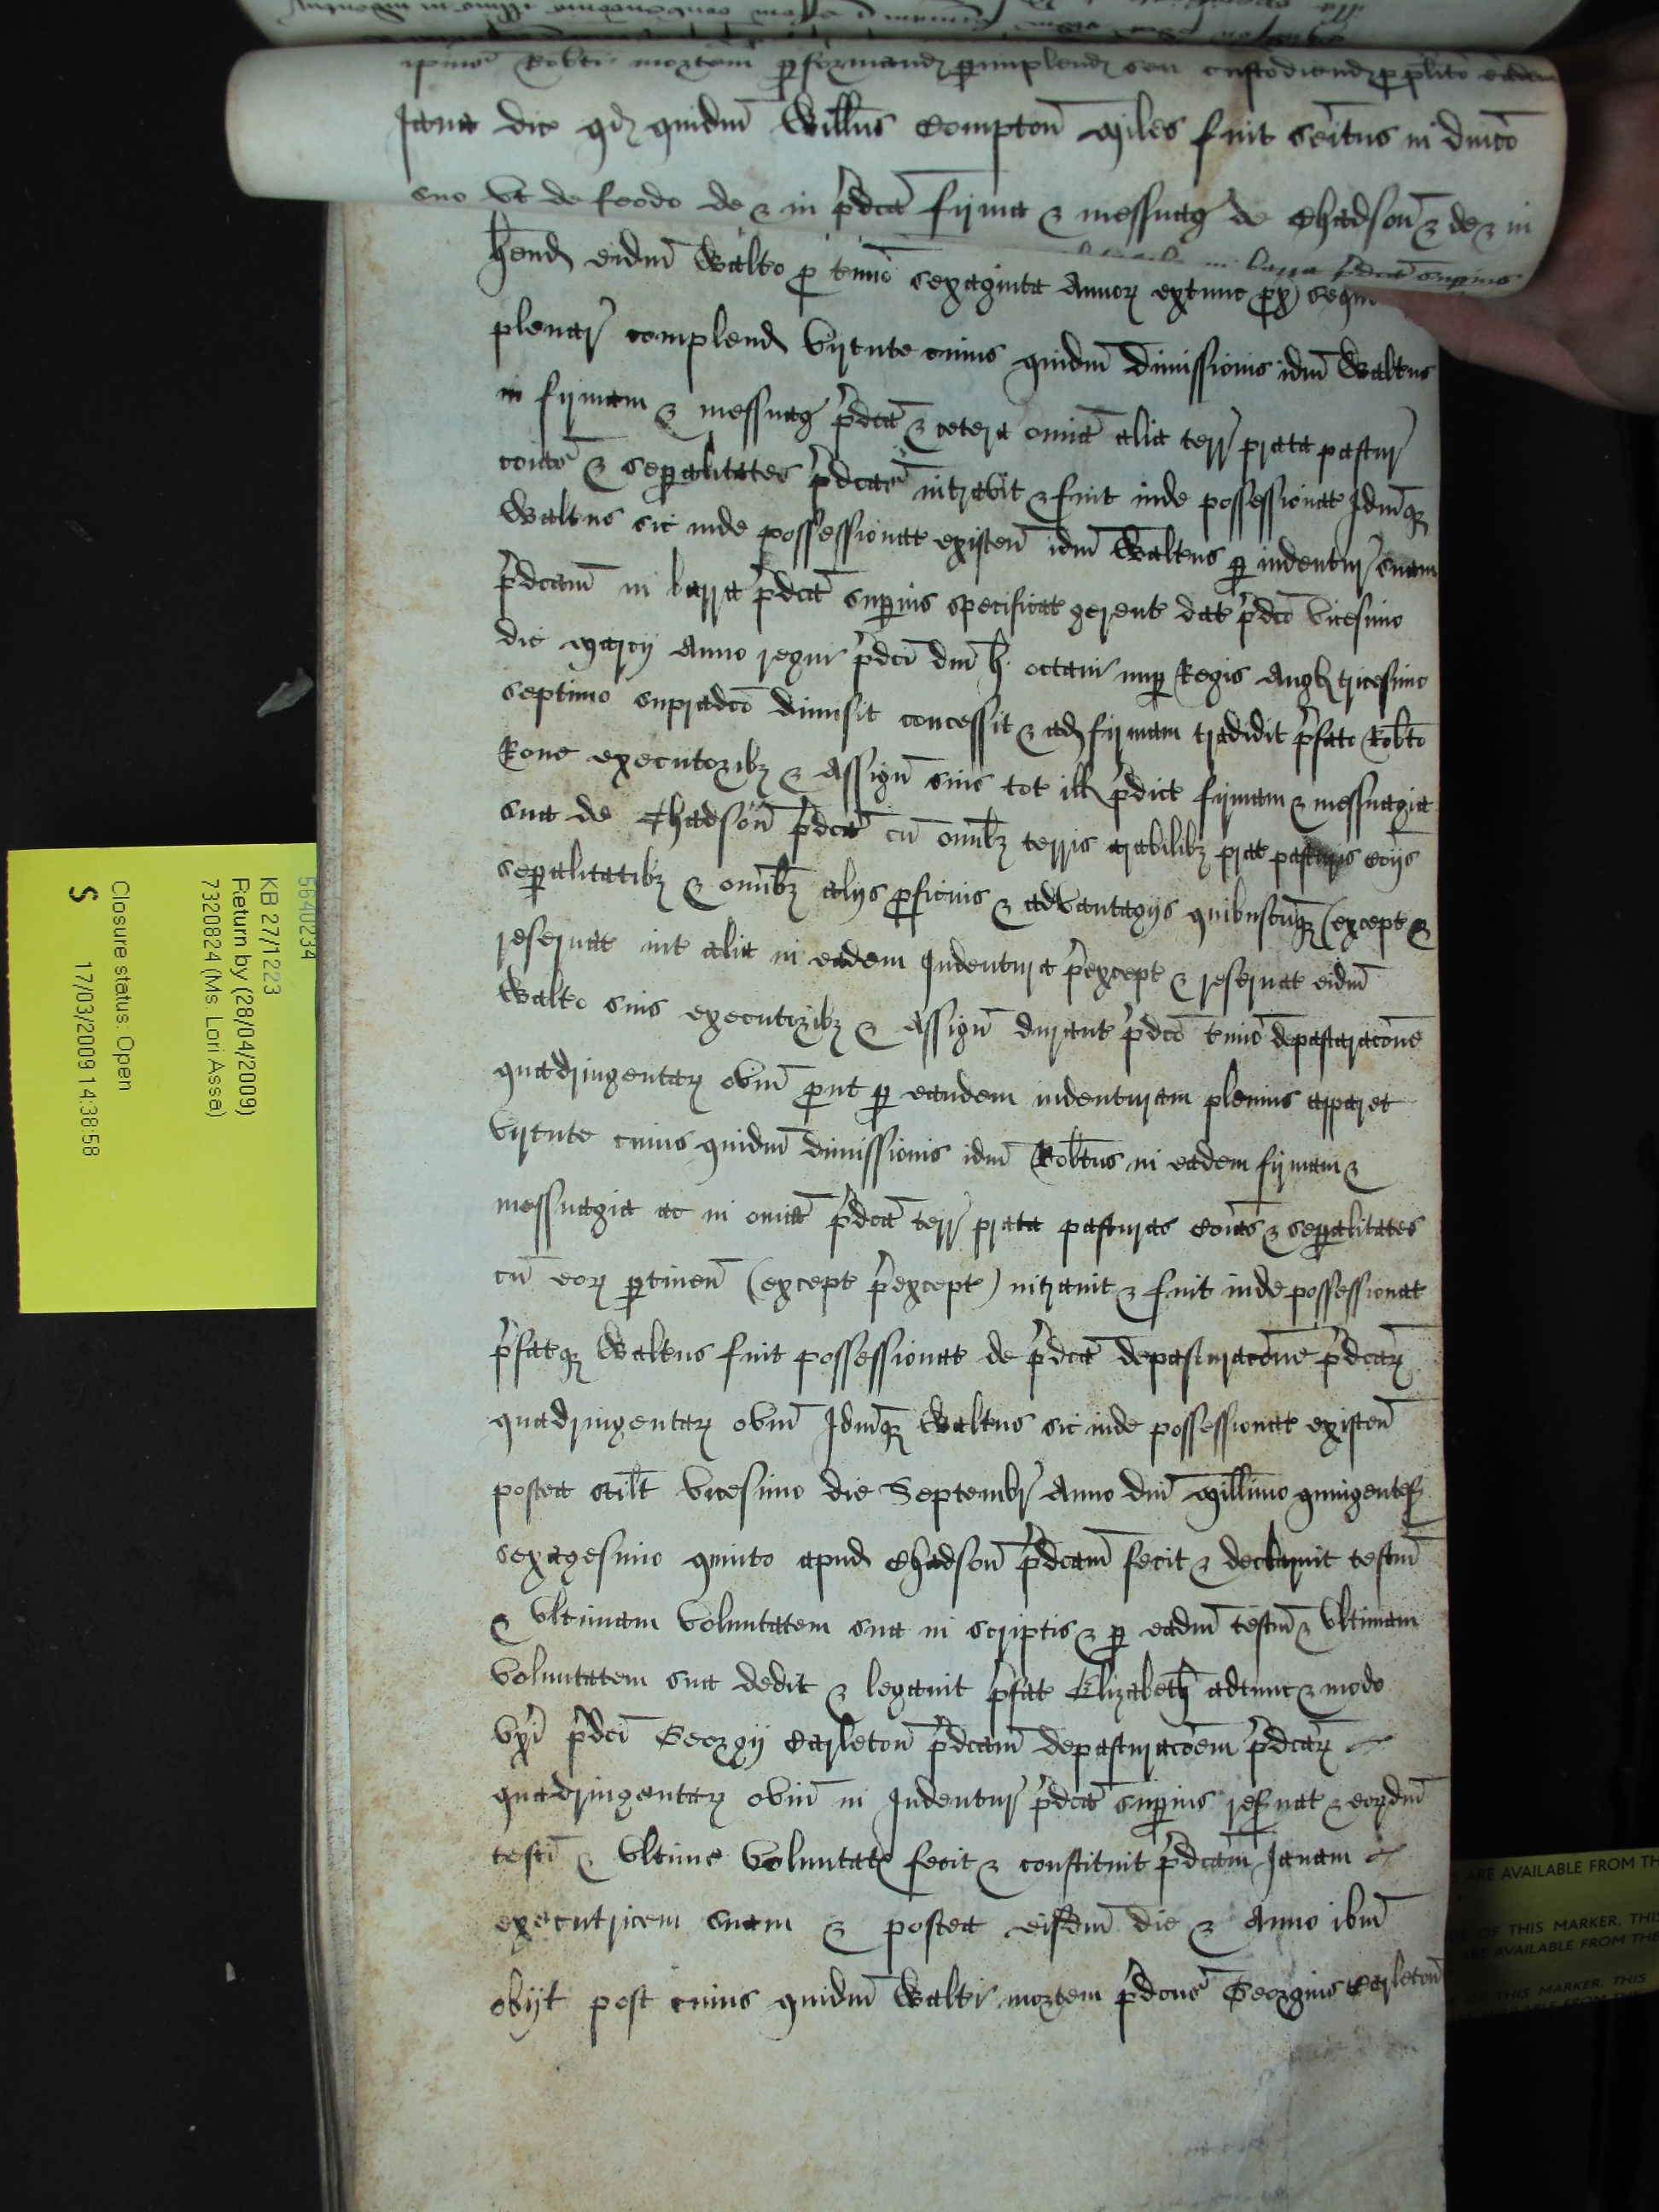 ipius Robti mortem pformand pimplend seu custodiend p plito eadem
Jana dic qd quidm Willus Compton Miles fuit seitus in dnico
suo vt de feodo de & in pdca firma & messuag de Chadson & de & in
barra pdca supius
hend eidm Walto p tmio sexaginta Annor extunc px sequ
plenar complend virtute cuius quidm dimissionis idm Waltus
in firmam & messuag pdca & cetera omia alia terr prata pastur
coias & sepalitates pdcas intravit & fuit inde possessionat Idmq
Waltus sic inde possessionat existen idm Waltus p indentur suam
pdcam in barra pdca supius specificat gerent dat pdco vicesimo
die Marcij Anno regni pdci dni h. octaui nup Regis Angl tricesimo
septimo supradco dimisit concessit & ad firmam tradidit pfato Robto
Rone executoribz & Assign suis tot ill pdict firmam & messuagia
sua de Chadson pdca cu omibz terris arabilibz prat pasturis coijs
sepalitatibz & omibz alijs pficuis & advantagijs quibuscuq (except &
reseruat int alia in eadem Indentura pexcept & reseruat eidm
Walto suis executoribz & Assign durant pdco tmio depasturacone
quadringentar oviu put p eandem indenturam plenius apparet
virtute cuius quidm dimissionis idm Robtus in eadem firmam &
messuagia ac in omia pdca terr prata pasturas coias & sepalitates
cu eor ptinen (except pexcept) intrauit & fuit inde possessionat
pfatq Waltus fuit possessionat de pdca depasturacone pdcar
quadringentar oviu Idmq Waltus sic inde possessionat existen
postea scilt vicesimo die Septembr Anno dni Millimo quingentes
sexagesimo quinto apud Chadson pdcam fecit & declarauit testm
& vltimam voluntatem sua in scriptis & p eadm testm & vltimam
voluntatem sua dedit & legauit pfat Elizabeth adtunc & modo
vxi pdci Georgij Carleton pdcam depasturacoem pdcar
quadringentar oviu in Indentur pdca supius resuat & eordm
testi & vltime voluntat fecit & constituit pdcam Janam
executricem suam & postea eisdm die & Anno ibm
obijt post cuius quidm Walti mortem pdcus Georgius Carleton
5640234
KB 27/1223
Return by (28/04/2009)
7320824 (Ms. Lori Assa)
Closure status: Open
S 17/03/2009 14:38:58
ARE AVAILABLE FROM TH
OF THIS MARKER. THIS
ARE AVAILABLE FROM THE
OF THIS MARKER. THIS